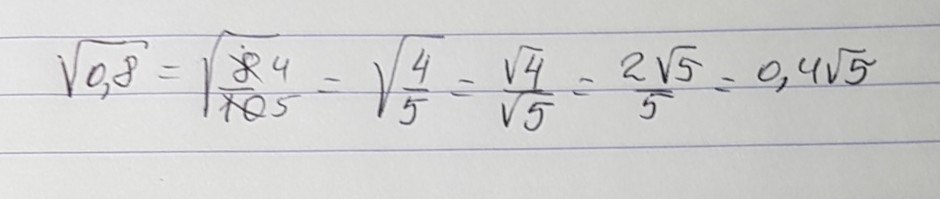 √0,8 = √8 4/10 5 = √4/5 = √4/√5 = 2√5/5 = 0,4√5